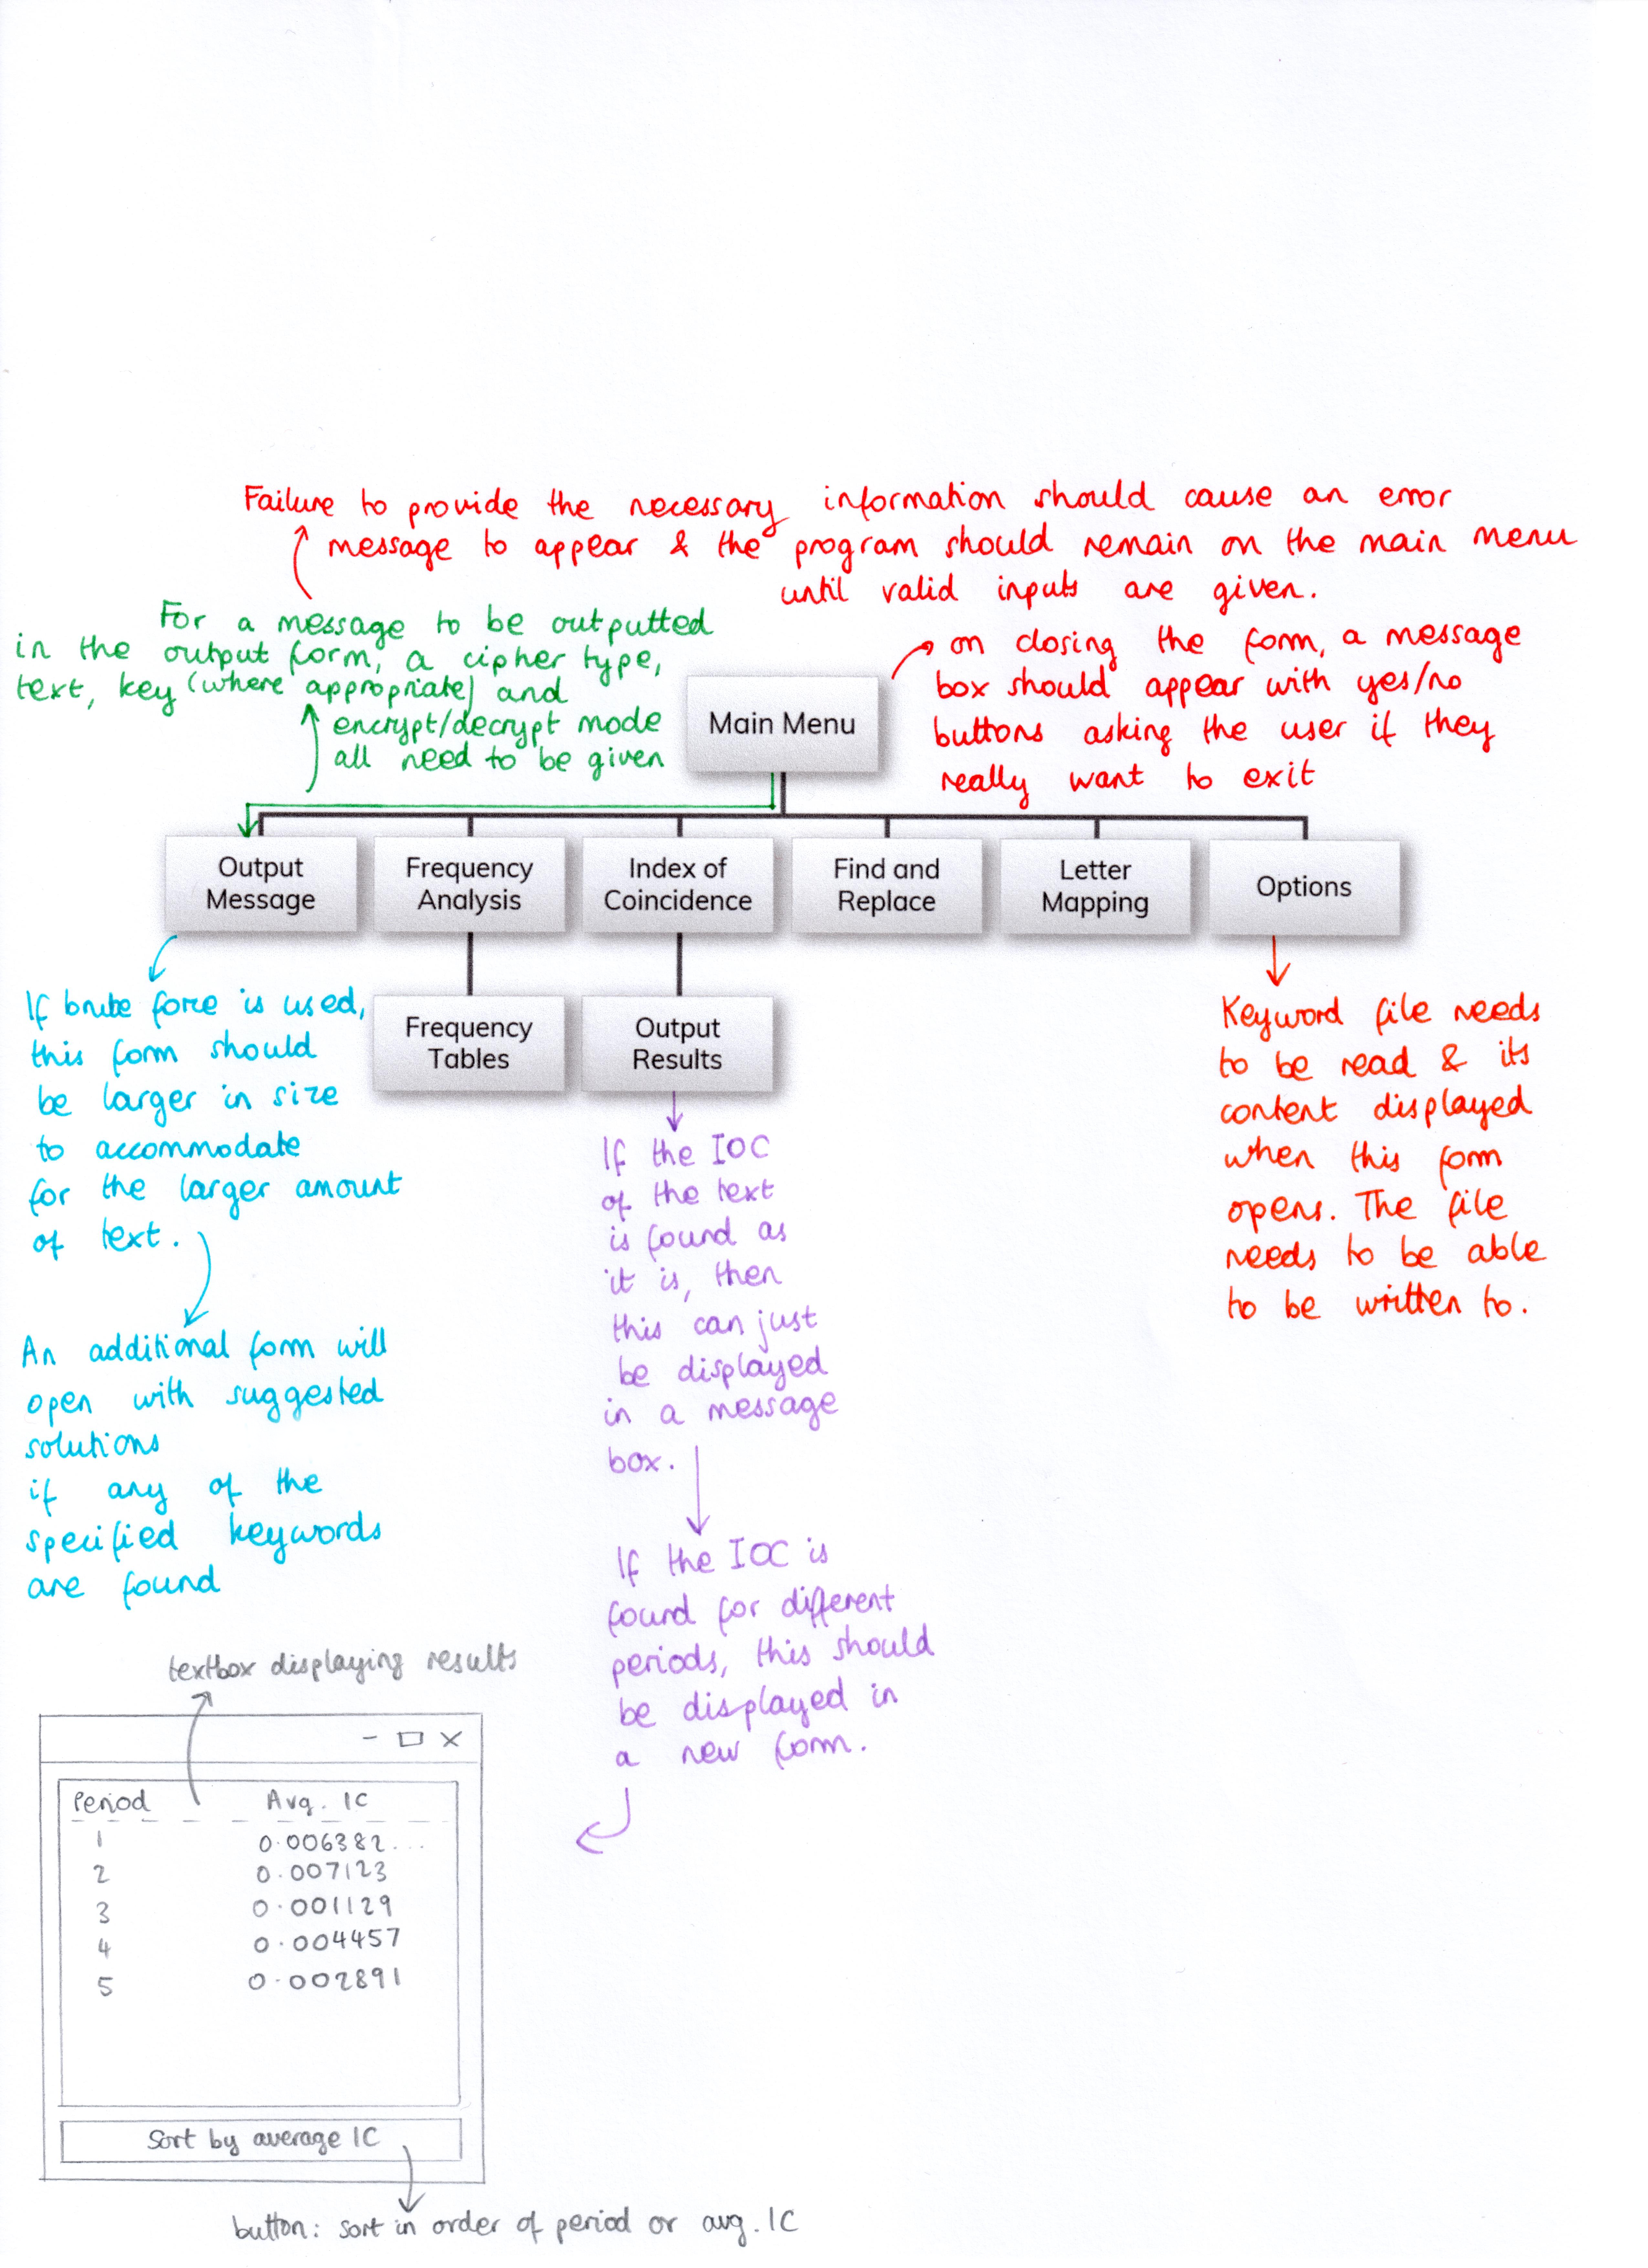 Failure to provide the necessary information should cause an error
message to appear & the program should remain on the main menu
until valid inputs are given.
For a message to be outputted
in the output form, a cipher type,
text, key (where appropriate) and
encrypt/decrypt mode
all need to be given
on closing the form, a message
box should appear with yes/no
buttons asking the user if they
really want to exit
Main Menu
Output
Message
Frequency
Analysis
Index of
Coincidence
Find and
Replace
Letter
Mapping
Options
Frequency
Tables
Output
Results
If brute force is used,
this form should
be larger in size
to accommodate
for the larger amount
of text.
An additional form will
open with suggested
solutions
if any of the
specified keywords
are found
If the IOC
of the text
is found as
it is, then
this can just
be displayed
in a message
box.
If the IOC is
found for different
periods, this should
be displayed in
a new form.
Keyword file needs
to be read & its
content displayed
when this form
opens. The file
needs to be able
to be written to.
textbox displaying results
Period Avg. IC
1 0.006382...
2 0.007123
3 0.001129
4 0.004457
5 0.002891
Sort by average IC
button: sort in order of period or avg. IC